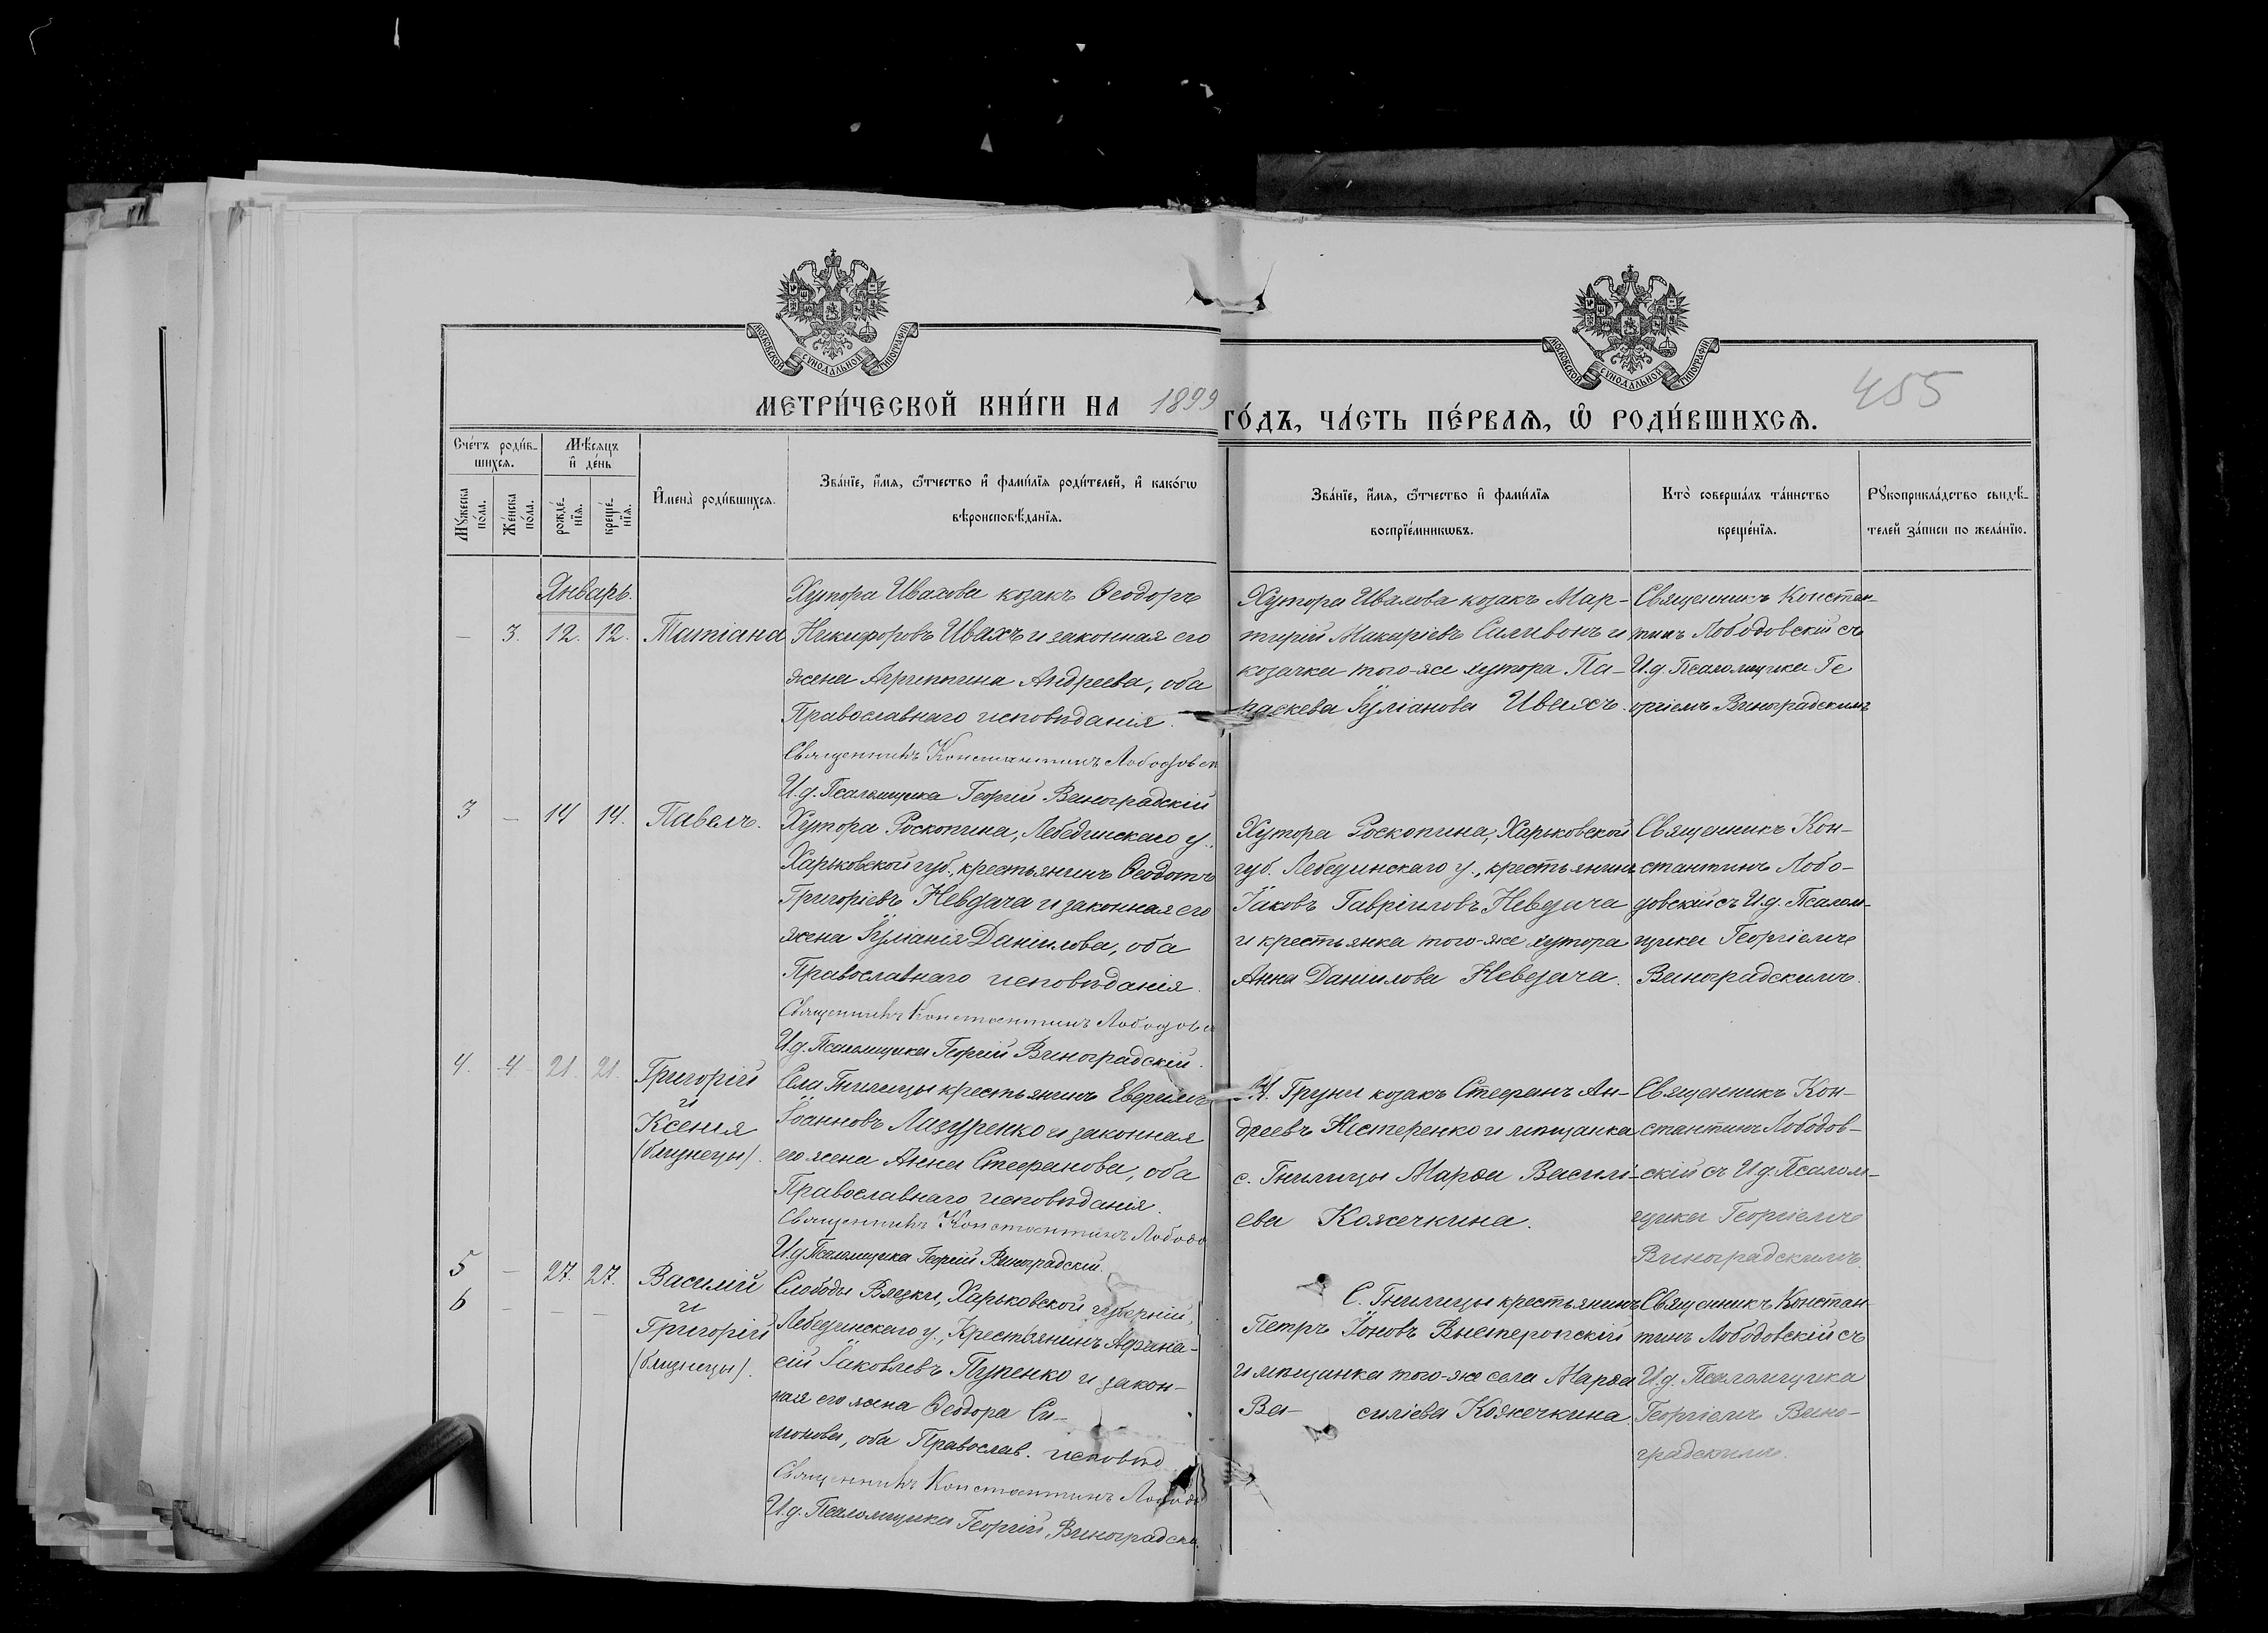 МОСКОВСКОЙ СУНОДАЛЬНОЙ ТИПОГРАФІИ
МОСКОВСКОЙ СУНОДАЛЬНОЙ ТИПОГРАФІИ
МЕТРИ́ЧЕСКОЙ КНИ́ГИ НА 1899
ГО́ДЪ, ЧА́СТЬ ПЕ́РВАѦ, Ѡ҆ РОДИ́ВШИХСѦ.
455
Сче́тъ роди́в-
шихсѧ.
Мꙋ́жеска
по́ла.
Же́нска
по́ла.
Мѣ́сѧцъ
и҆ де́нь
рожде́-
нїѧ.
креще́-
нїѧ.
И҆мена̀ роди́вшихсѧ.
Зва́нїе, и҆́мѧ, ѻ҆́тчество и҆ фами́лїѧ роди́телей, и҆ како́гѡ
вѣроисповѣ́данїѧ.
Зва́нїе, и҆́мѧ, ѻ҆́тчество и҆ фами́лїѧ
воспрїе́мникѡвъ.
Кто̀ соверша́лъ та́инство
креще́нїѧ.
Рꙋкоприкла́дство свидѣ́-
телей за́писи по жела́нїю.
Январь.
— 3. 12. 12. Татіана
Хутора Ивахова козакъ Ѳеодоръ
Никифоровъ Ивахъ и законная его
жена Агриппина Андреева, оба
Православнаго исповѣданія.
Священникъ Константинъ Лободовск
И.д. Псаломщика Георгій Виноградскій
Хутора Ивахова козакъ Мар-
тирій Макиріевъ Силивонъ и
козачка того-же хутора Па-
раскева Іуліанова Ивахъ.
Священникъ Констан-
тинъ Лободовскій съ
И.д. Псаломщика Ге
оргіемъ Виноградскимъ
3 — 14 14. Павелъ.
Хутора Роскопина, Лебединскаго у.,
Харьковской губ., крестьянинъ Ѳеодотъ
Григоріевъ Невдача и законная его
жена Іуліанія Даніилова, оба
Православнаго исповѣданія.
Священникъ Константинъ Лободовс
И.д. Псаломщика Георгій Виноградскій.
Хутора Роскопина, Харьковской
губ. Лебединскаго у., крестьянинъ
Іаковъ Гавріиловъ Невдача
и крестьянка того-же хутора
Анна Даніилова Невдача.
Священникъ Кон-
стантинъ Лобо-
довскій съ И.д. Псалом-
щика Георгіемъ
Виноградскимъ.
4. 4 21. 21. Григорій
и
Ксенія
(близнецы).
Села Гнилицы крестьянинъ
Іоанновъ Лазуренко и законная
его жена Анна Стефанова, оба
Православнаго исповѣданія.
Священникъ Константинъ Лободо
И.д Псаломщика Георгій Виноградскій.
М. Груни козакъ Стефанъ Ан-
дреевъ Нестеренко и мѣщанка
с. Гнилицы Марѳа Василі-
ева Кожечкина.
Священникъ Кон-
стантинъ Лободов-
скій съ И.д. Псалом-
щика Георгіемъ
Виноградскимъ.
5 — 27. 27. Василій
6 — — — и
Григорій
(близнецы).
Слободы Вязки, Харьковской губерніи,
Лебединскаго у., Крестьянинъ Аѳана-
сій Іаковлевъ Пупенко и закон-
ная его жена Ѳеодора Си-
монова, оба Православ. исповѣд
Священникъ Константинъ Лободо
И.д. Псаломщика Георгій Виноградскі
С. Гнилицы крестьянинъ
Петръ Іоновъ
и мѣщанка того-же села Марѳа
Ва- силіева Кожечкина.
Священникъ Констан
тинъ Лободовскій съ
И.д. Псаломщика
Георгіемъ Вино-
градскимъ.